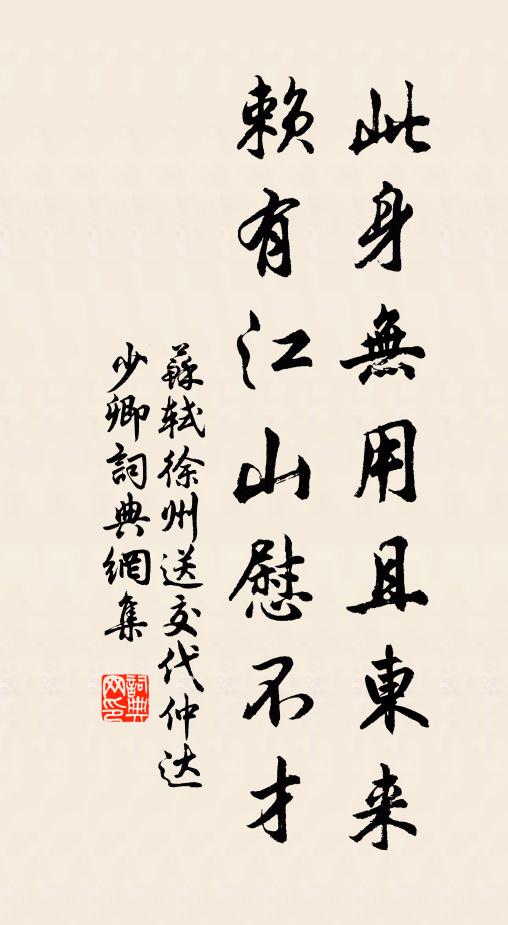 此身無用且東来
賴有江山慰不才
蘇軾徐州送交代仲达
少卿詞典網集
詞典
网印